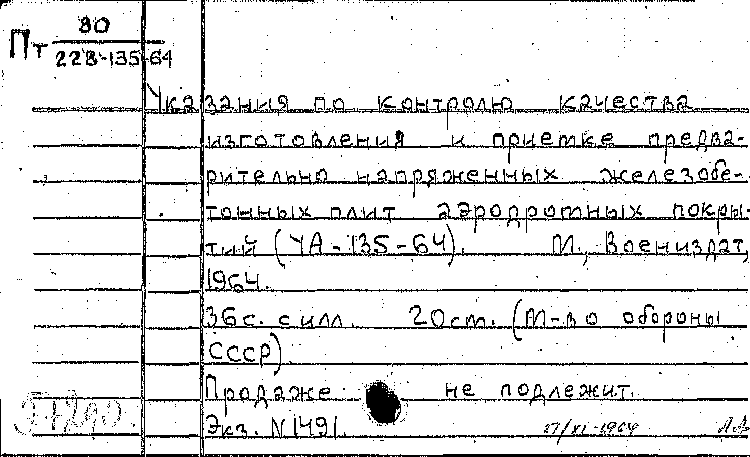 Пт 80
228-135-64
Указания по контролю качества
изготовления и приемке предва-
рительно напряженных железобе-
тонных плит аэродромных покры-
тий (УА-135-64). М., Воениздат,
1964.
36с. с илл. 20см. (М-во обороны
СССР)
Продаже не подлежит.
Экз. N1491. 17/XI-1964